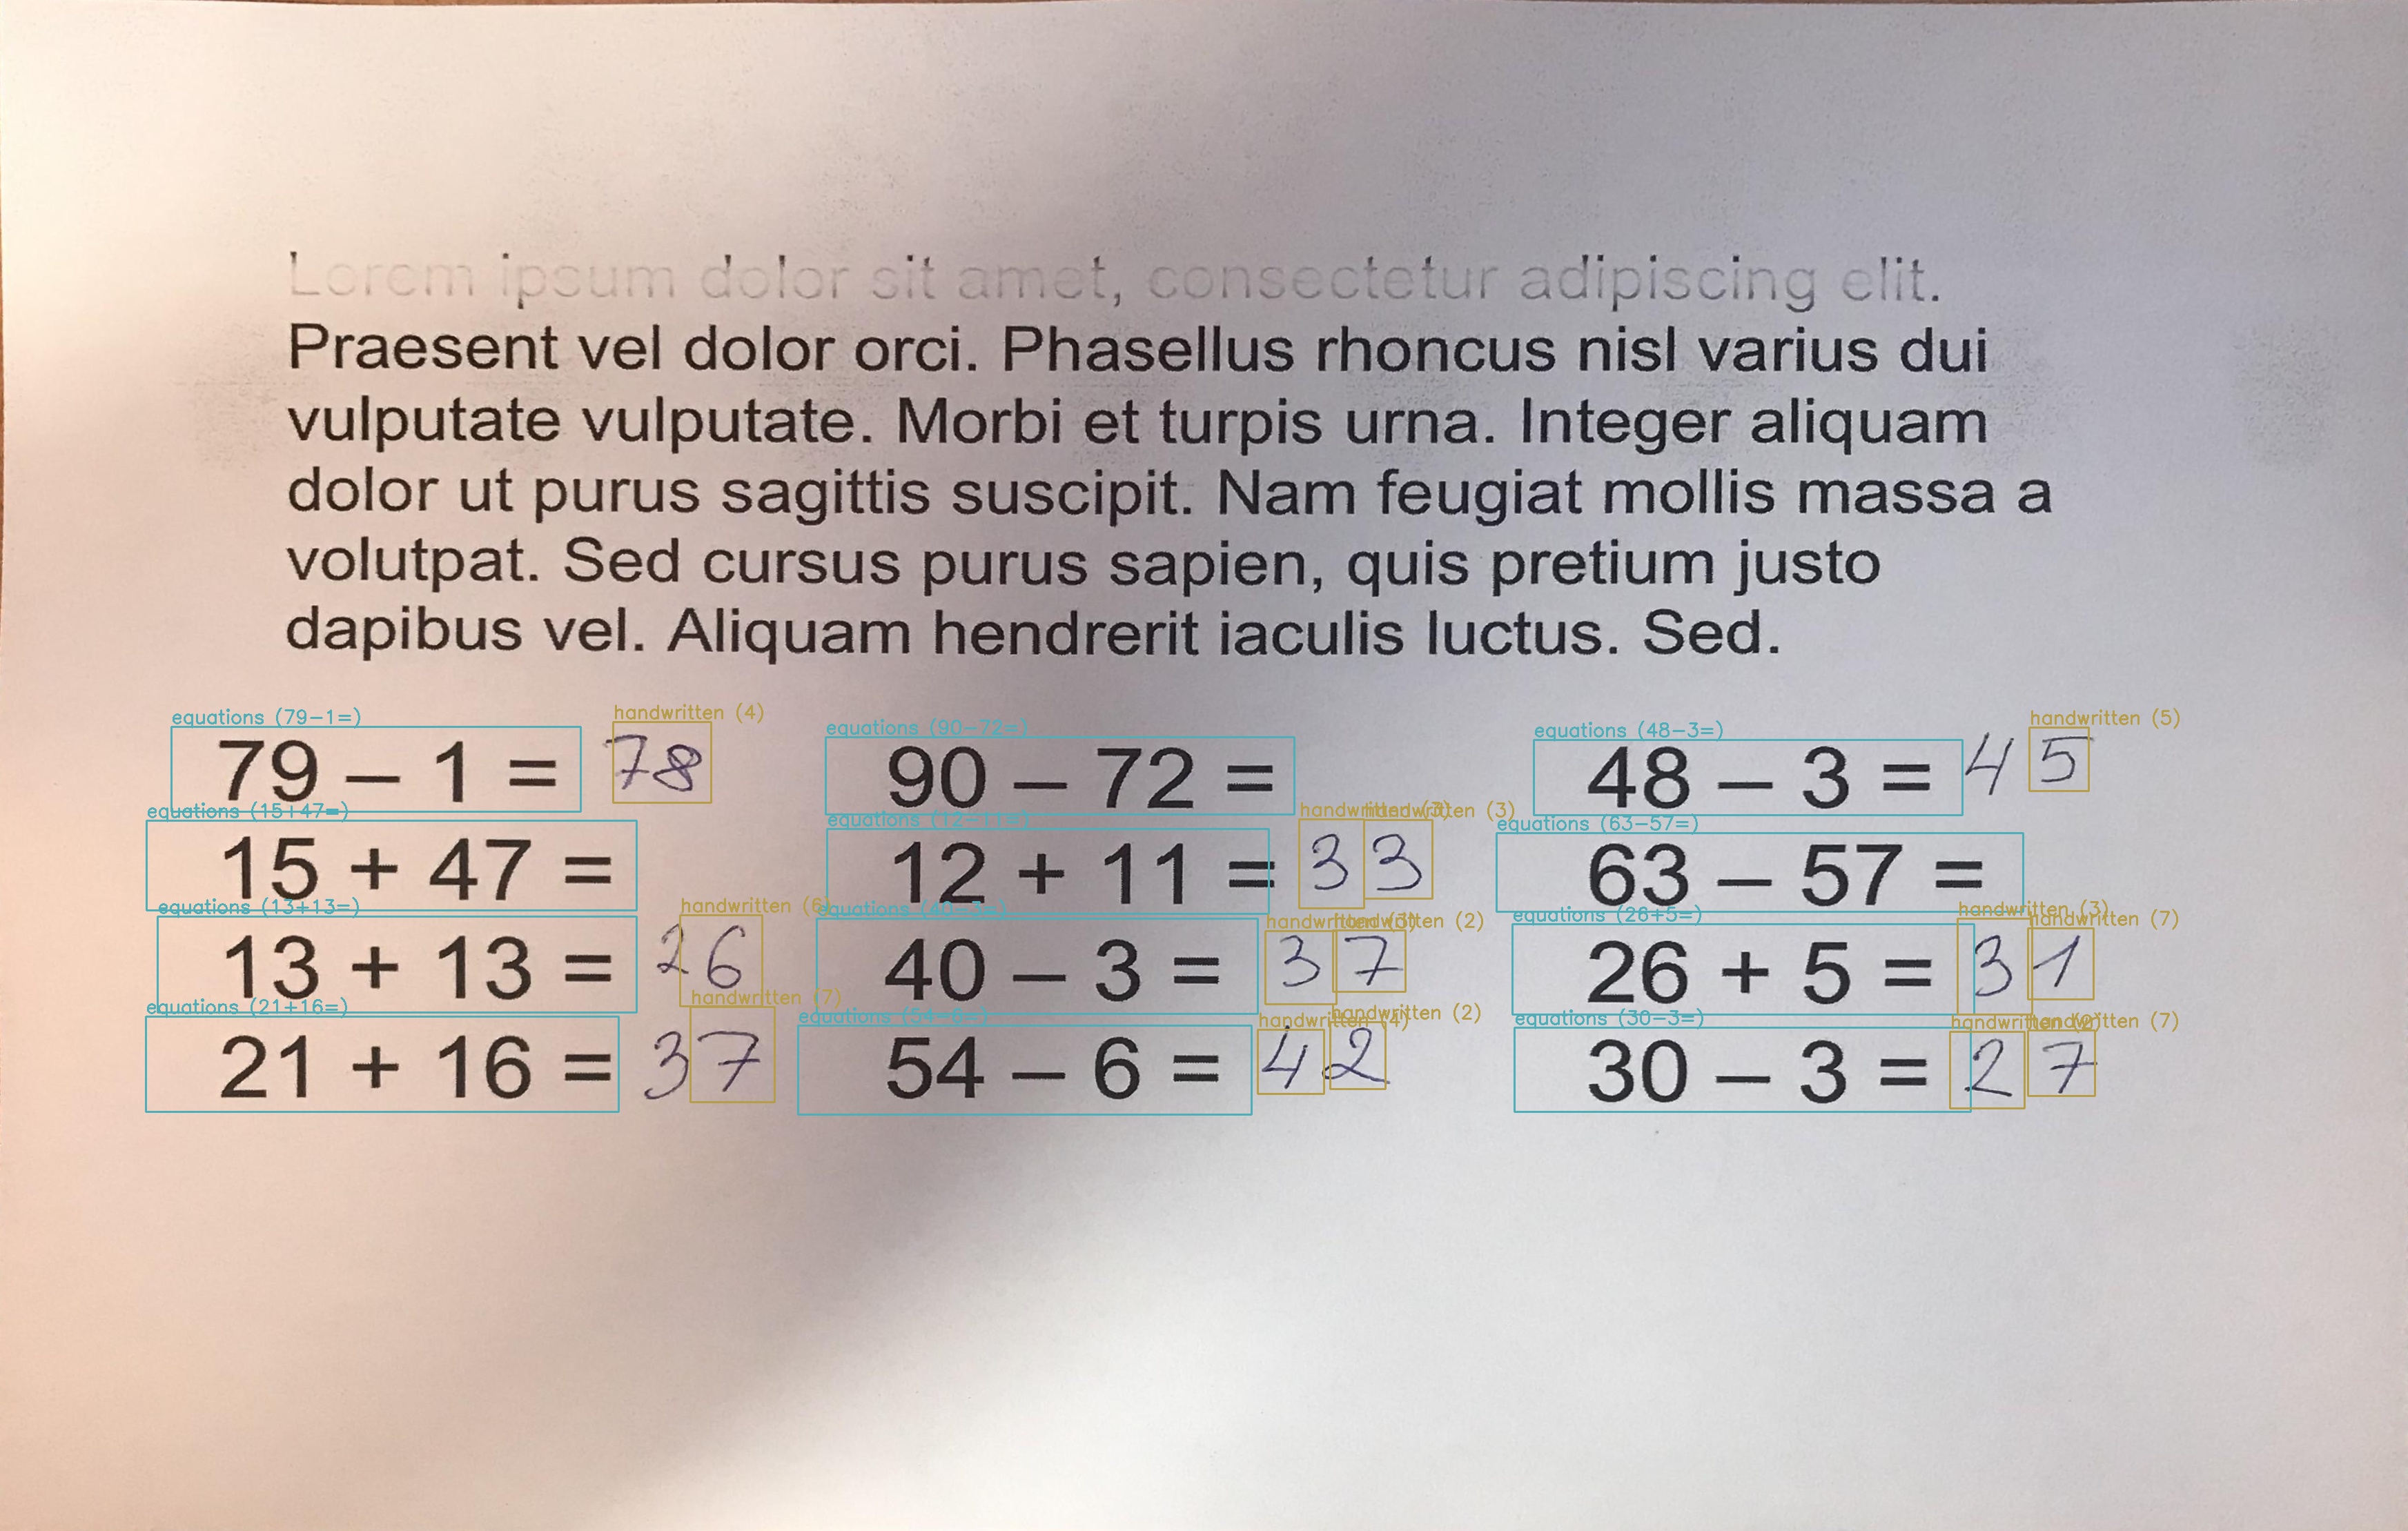 Lorem ipsum dolor sit amet, consectetur adipiscing elit.
Praesent vel dolor orci. Phasellus rhoncus nisl varius dui
vulputate vulputate. Morbi et turpis urna. Integer aliquam
dolor ut purus sagittis suscipit. Nam feugiat mollis massa a
volutpat. Sed cursus purus sapien, quis pretium justo
dapibus vel. Aliquam hendrerit iaculis luctus. Sed.
equations (79-1=) handwritten (4) equations (90-72=) equations (48-3=) handwritten (5)
79 – 1 = 78 90 – 72 = 48 – 3 = 45
equations (15+47=) handwritten (3) equations (63-57=)
15 + 47 = 12 + 11 = 33 63 – 57 =
equations (13+13=) handwritten (6) equations (40-3=) handwritten (2) equations (26+5=) handwritten (3) handwritten (7)
13 + 13 = 26 40 – 3 = 37 26 + 5 = 31
equations (21+16=) handwritten (7) equations (54-6=) handwritten (4) handwritten (2) equations (30-3=) handwritten (7)
21 + 16 = 37 54 – 6 = 42 30 – 3 = 27